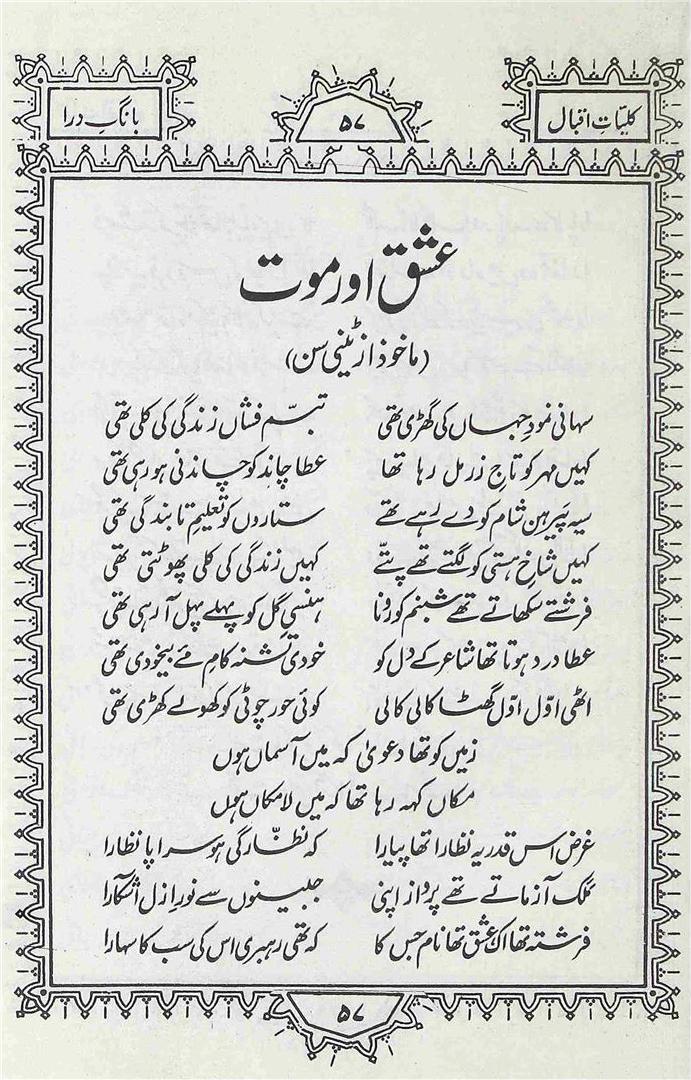 کلیّاتِ اقبال
۵۷
بانگِ درا
عشق اور موت
(ماخوذ از ٹینی سن)
سہانی نمودِ جہاں کی گھڑی تھی تبسّم فشاں زندگی کی کلی تھی
کہیں مہر کو تاجِ زر مل رہا تھا عطا چاند کو چاندنی ہو رہی تھی
سیہ پیرہن شام کو دے رہے تھے ستاروں کو تعلیمِ تابندگی تھی
کہیں شاخِ ہستی کو لگتے تھے پتّے کہیں زندگی کی کلی پھوٹتی تھی
فرشتے سکھاتے تھے شبنم کو رونا ہنسی گل کو پہلے پہل آ رہی تھی
عطا درد ہوتا تھا شاعر کے دل کو خودی تشنہ کامِ مئے بیخودی تھی
اٹھی اوّل اوّل گھٹا کالی کالی کوئی حور چوٹی کو کھولے کھڑی تھی
زمیں کو تھا دعویٰ کہ میں آسماں ہوں
مکاں کہہ رہا تھا کہ میں لامکاں ہوں
غرض اس قدر یہ نظارا تھا پیارا کہ نظّارگی ہو سراپا نظارا
ملک آزماتے تھے پرواز اپنی جبینوں سے نورِ ازل آشکارا
فرشتہ تھا اک عشق تھا نام جس کا کہ تھی رہبری اس کی سب کا سہارا
۵۷